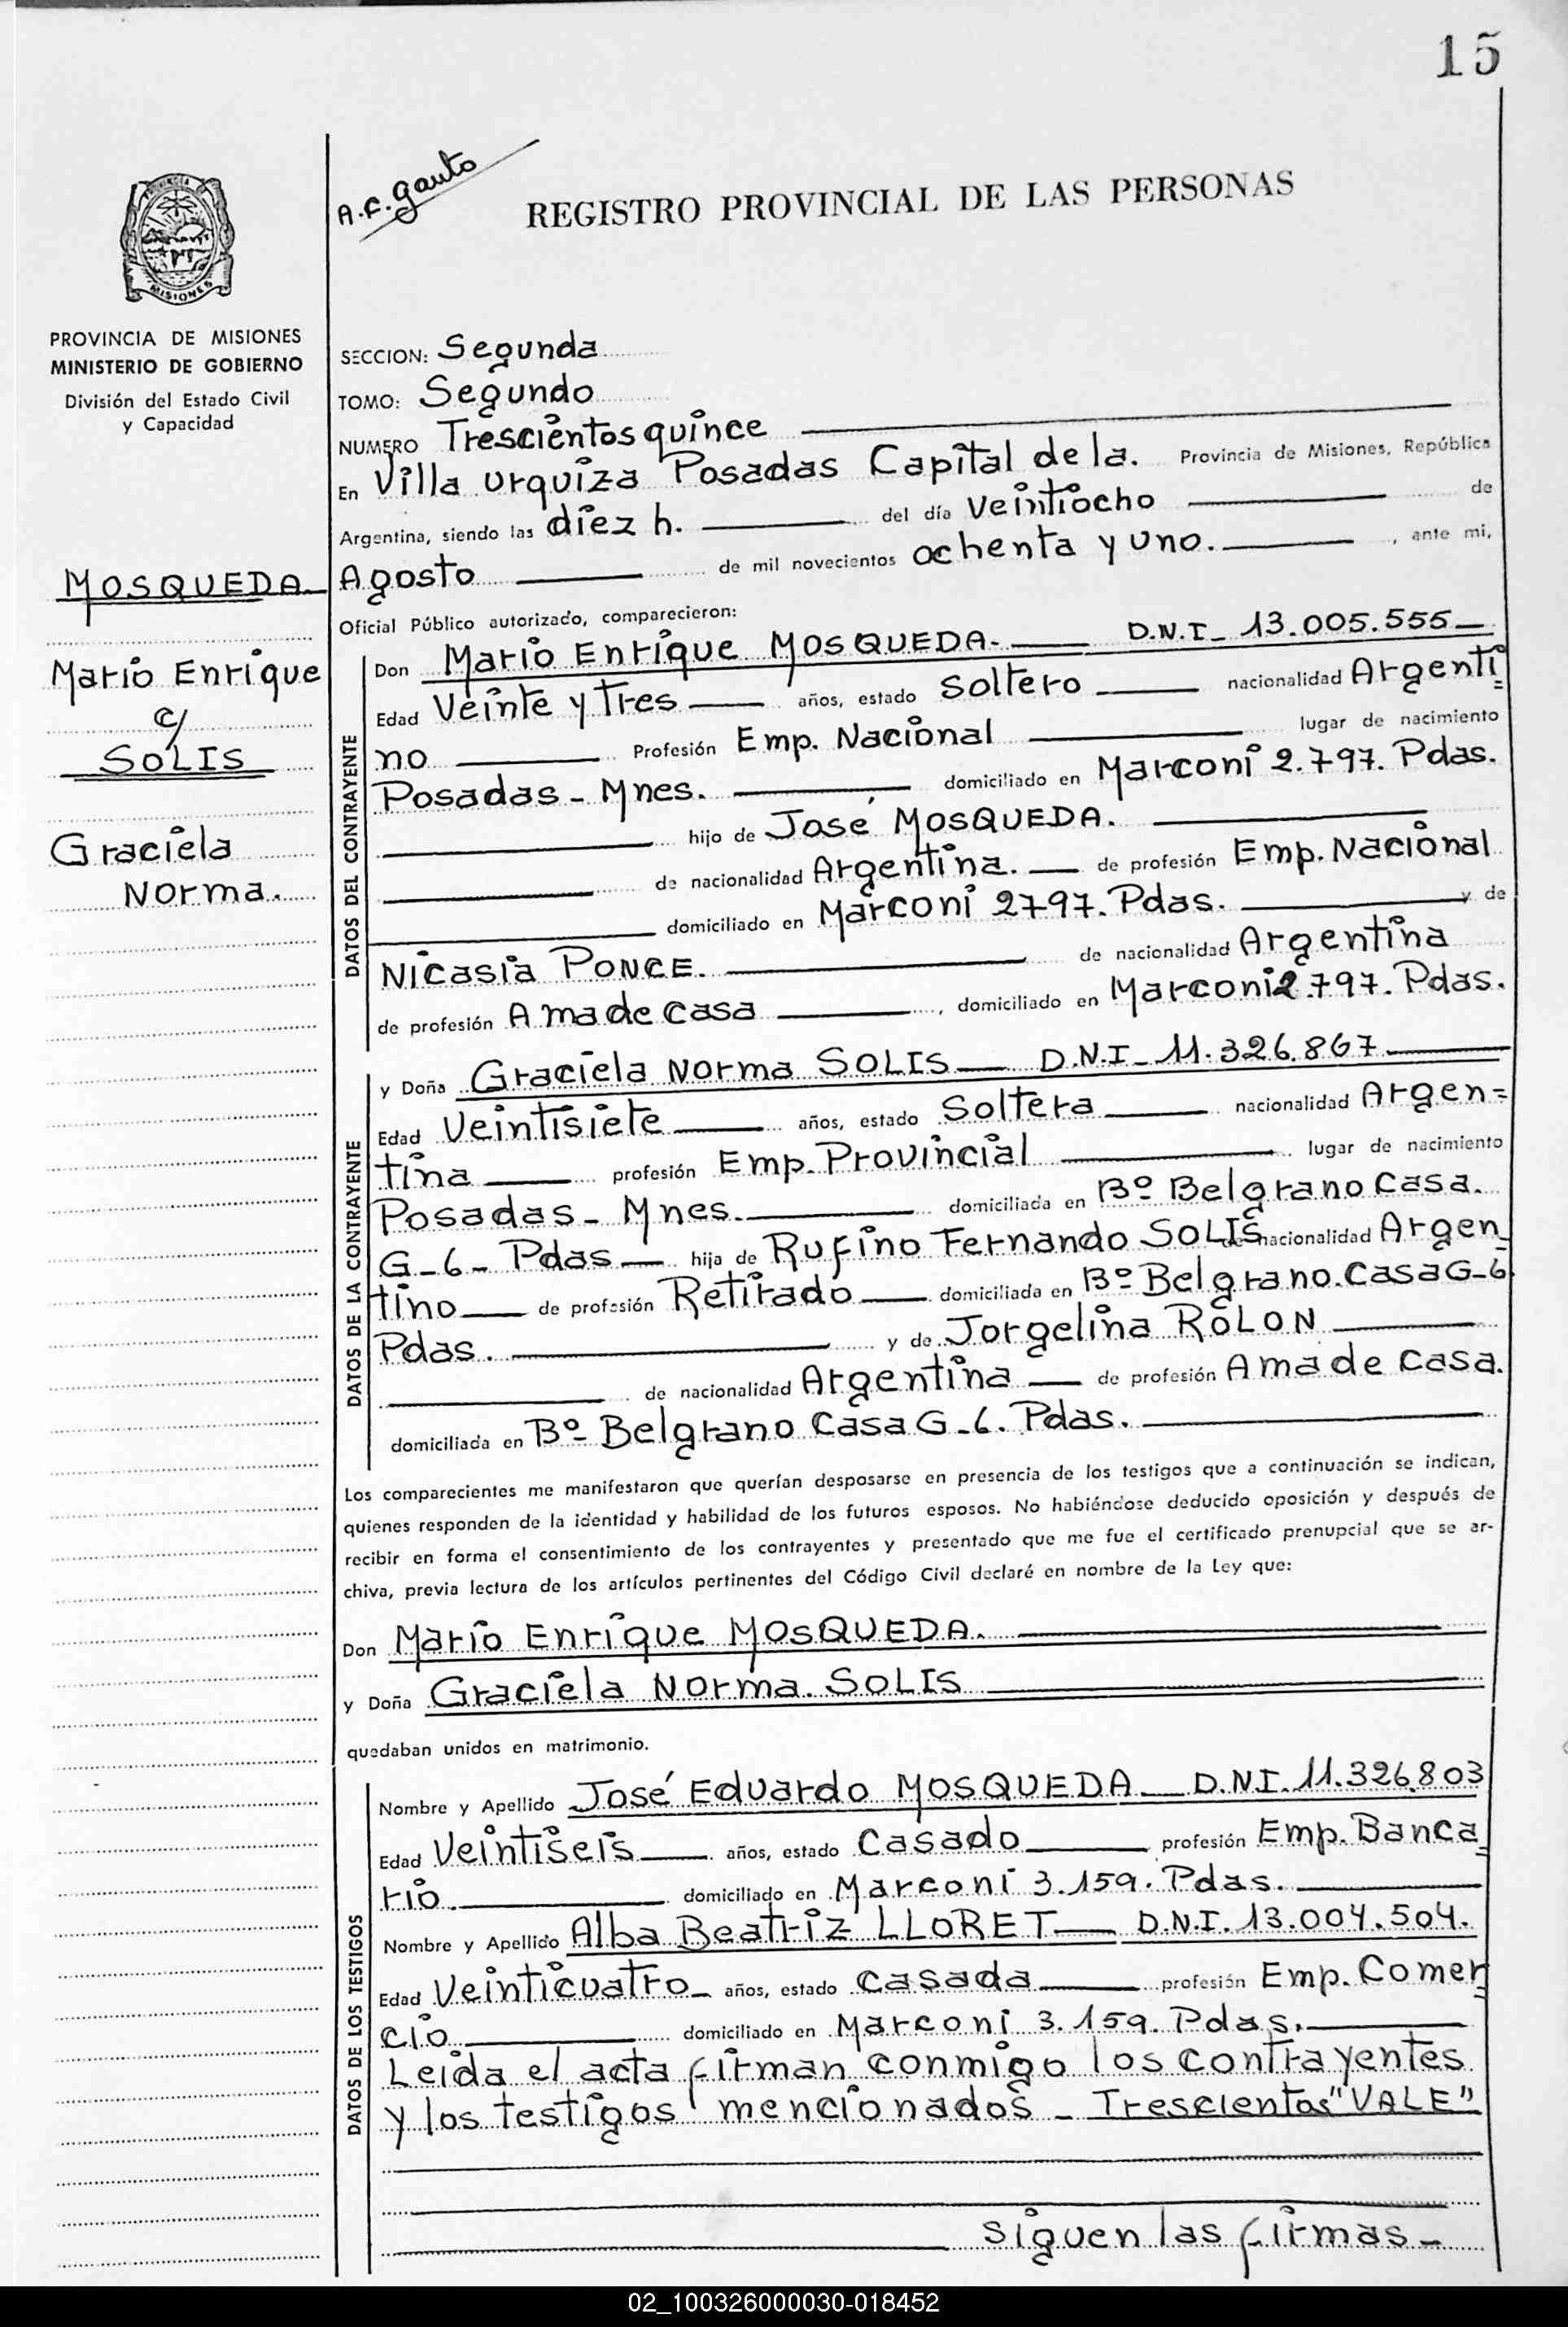 15
A.F. Gauto
REGISTRO PROVINCIAL DE LAS PERSONAS
PROVINCIA
MISIONES
PROVINCIA DE MISIONES
MINISTERIO DE GOBIERNO
División del Estado Civil
y Capacidad
MOSQUEDA
Mario Enrique
c/
SOLIS
Graciela
Norma.
SECCION: Segunda
TOMO: Segundo
NUMERO Trescientos quince
En Villa Urquiza Posadas Capital de la. Provincia de Misiones, República
Argentina, siendo las diez h. del día Veintiocho de
Agosto de mil novecientos ochenta y uno. , ante mi,
Oficial Público autorizado, comparecieron:
DATOS DEL CONTRAYENTE
Don Mario Enrique MOSQUEDA. D.N.I_ 13.005.555_
Edad Veinte y tres años, estado Soltero nacionalidad Argenti=
no Profesión Emp. Nacional lugar de nacimiento
Posadas - Mnes. domiciliado en Marconi 2.797. Pdas.
hijo de José MOSQUEDA.
de nacionalidad Argentina. de profesión Emp. Nacional
domiciliado en Marconi 2797. Pdas. y de
Nicasia PONCE. de nacionalidad Argentina
de profesión Ama de casa , domiciliado en Marconi 2.797. Pdas.
DATOS DE LA CONTRAYENTE
y Doña Graciela Norma SOLIS D.N.I_ 11.326.867
Edad Veintisiete años, estado Soltera nacionalidad Argen=
tina profesión Emp. Provincial lugar de nacimiento
Posadas - Mnes. domiciliada en Bº Belgrano Casa.
G-6- Pdas hija de Rufino Fernando SOLIS de nacionalidad Argen_
tino de profesión Retirado domiciliada en Bº Belgrano. Casa G-6
Pdas. y de Jorgelina ROLON
de nacionalidad Argentina de profesión Ama de casa.
domiciliada en Bº Belgrano Casa G-6. Pdas.
Los comparecientes me manifestaron que querían desposarse en presencia de los testigos que a continuación se indican,
quienes responden de la identidad y habilidad de los futuros esposos. No habiéndose deducido oposición y después de
recibir en forma el consentimiento de los contrayentes y presentado que me fue el certificado prenupcial que se ar-
chiva, previa lectura de los artículos pertinentes del Código Civil declaré en nombre de la Ley que:
Don Mario Enrique MOSQUEDA.
y Doña Graciela Norma. SOLIS
quedaban unidos en matrimonio.
DATOS DE LOS TESTIGOS
Nombre y Apellido José Eduardo MOSQUEDA D.N.I. 11.326.803
Edad Veintiseis años, estado Casado profesión Emp. Banca_
rio. domiciliado en Marconi 3.159. Pdas.
Nombre y Apellido Alba Beatriz LLORET D.N.I. 13.004.504.
Edad Veinticuatro años, estado casada profesión Emp. Comer=
cio domiciliado en Marconi 3.159. Pdas.
Leida el acta firman conmigo los contrayentes
y los testigos mencionados - Trescientos "VALE"
siguen las firmas-
02_100326000030-018452